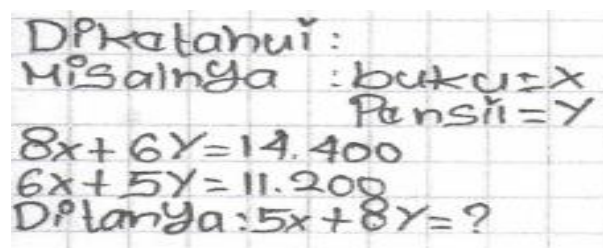 Diketahui :
Misalnya : buku = x
Pensil = Y
8x + 6Y = 14.400
6x + 5Y = 11.200
Ditanya : 5x + 8Y = ?